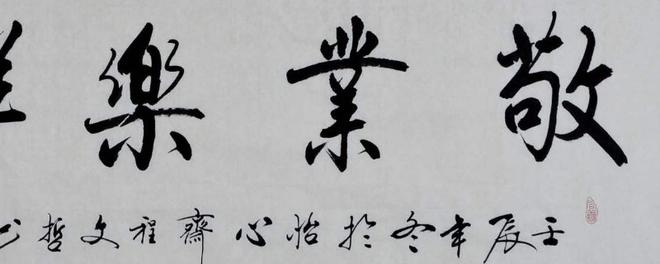 敬業樂
壬辰年冬於怡心齋程文哲